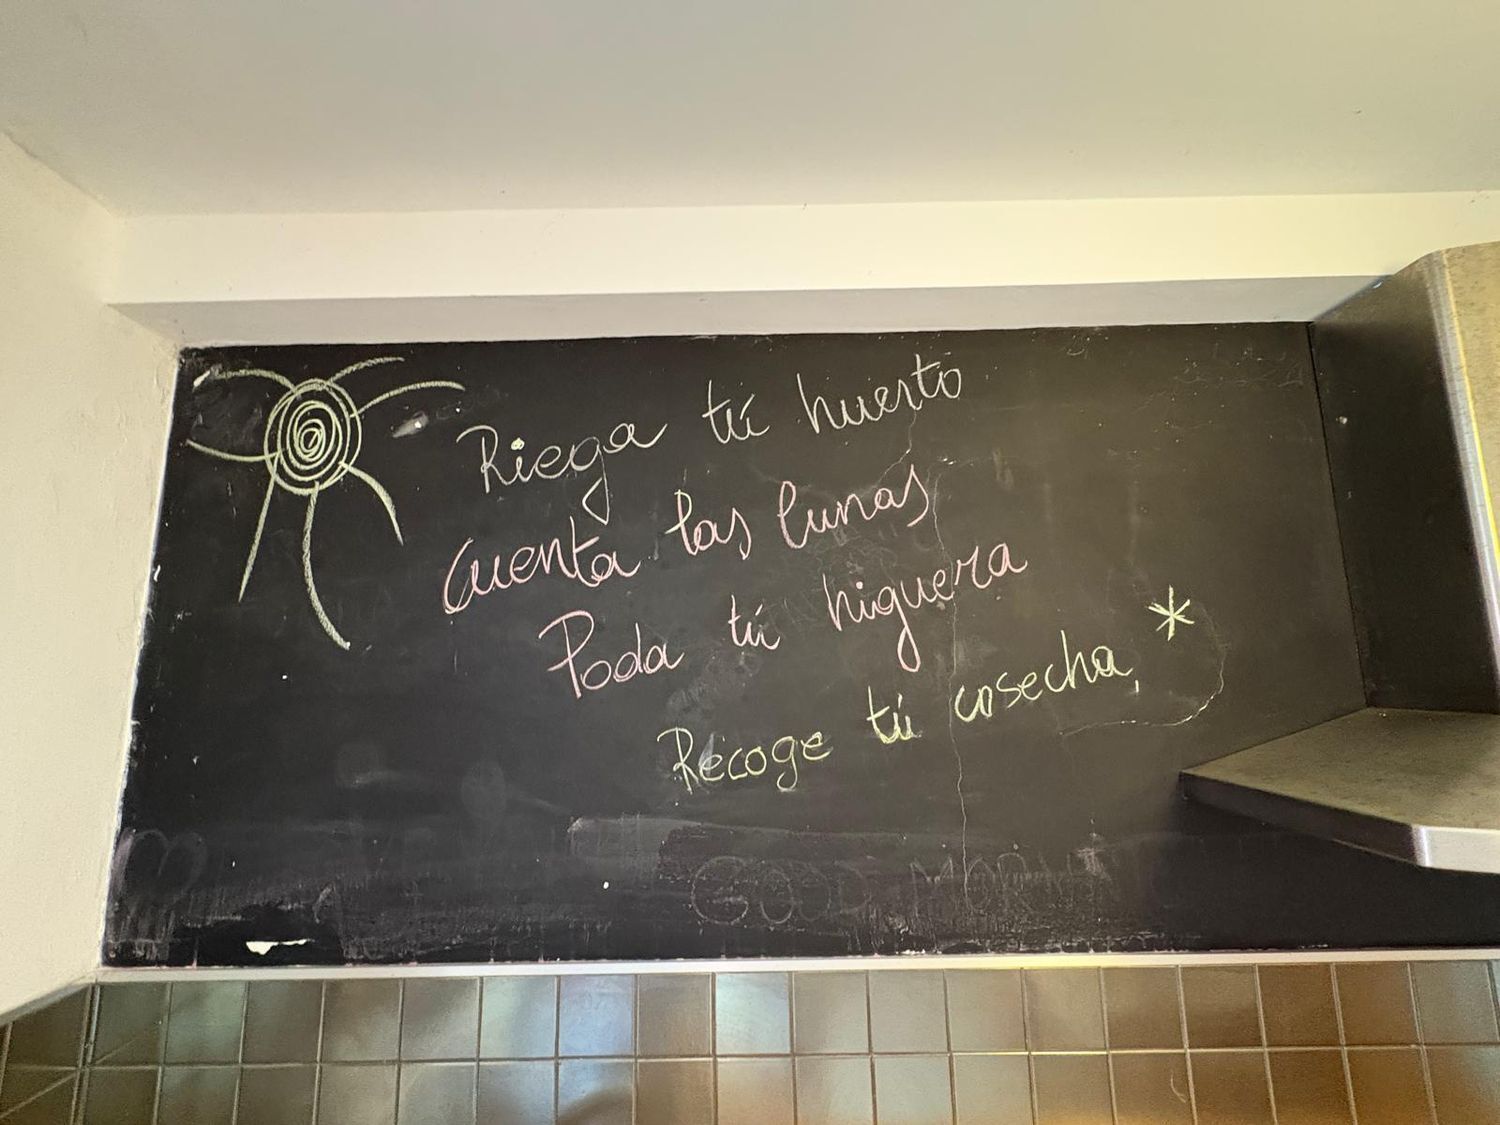 Riega tú huerto
Cuenta las lunas
Poda tú higuera
Recoge tú cosecha, *
GOOD MORN